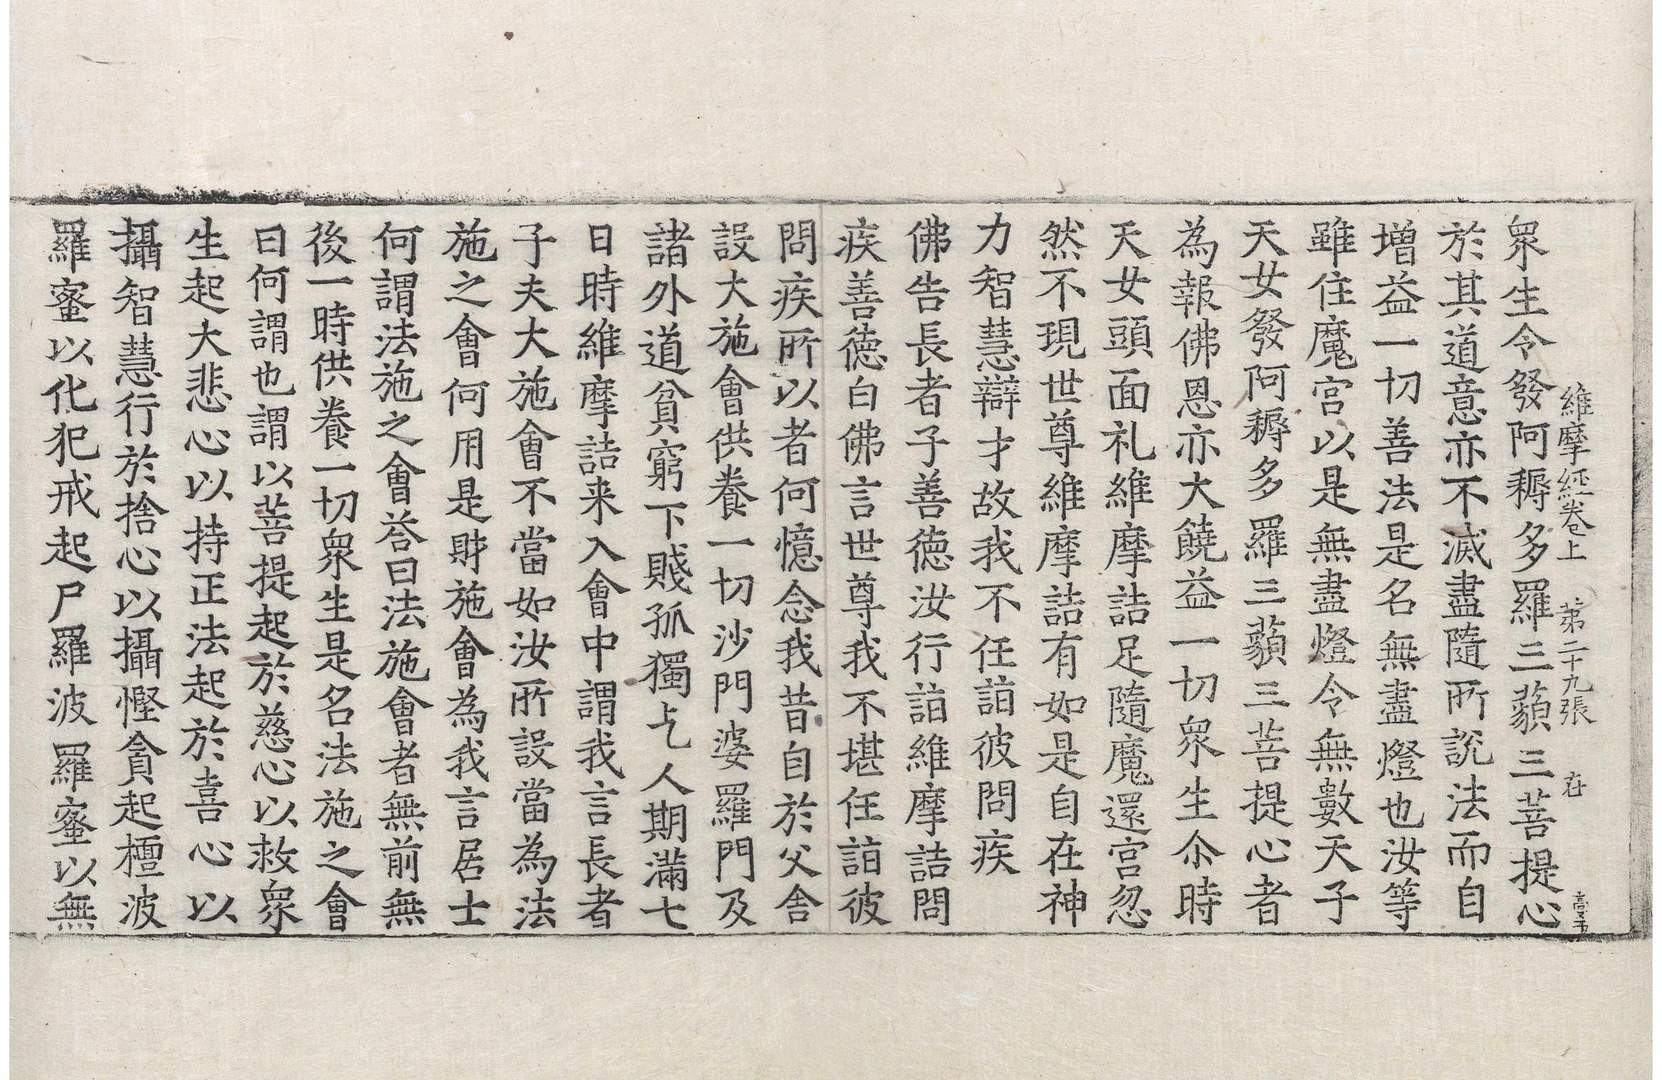 維摩經卷上 第二十九張 在
衆生令發阿耨多羅三藐三菩提心
於其道意亦不滅盡隨所說法而自
增益一切善法是名無盡燈也汝等
雖住魔宮以是無盡燈令無數天子
天女發阿耨多羅三藐三菩提心者
為報佛恩亦大饒益一切衆生尒時
天女頭面礼維摩詰足隨魔還宮忽
然不現世尊維摩詰有如是自在神
力智慧辯才故我不任詣彼問疾
佛告長者子善德汝行詣維摩詰問
疾善德白佛言世尊我不堪任詣彼
問疾所以者何憶念我昔自於父舍
設大施會供養一切沙門婆羅門及
諸外道貧窮下賤孤獨乞人期滿七
日時維摩詰来入會中謂我言長者
子夫大施會不當如汝所設當為法
施之會何用是財施會為我言居士
何謂法施之會荅曰法施會者無前無
後一時供養一切衆生是名法施之會
曰何謂也謂以菩提起於慈心以救衆
生起大悲心以持正法起於喜心以
攝智慧行於捨心以攝慳貪起檀波
羅蜜以化犯戒起尸羅波羅蜜以無